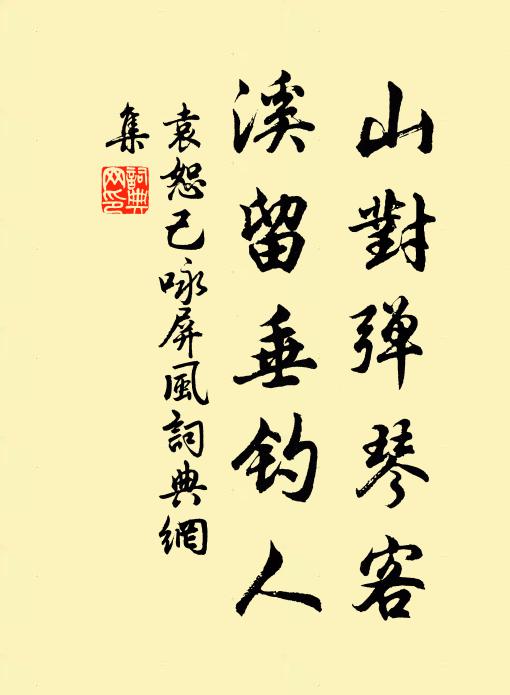 山對彈琴客
溪留垂釣人
袁恕己咏屏風詞典網
集
詞典網印